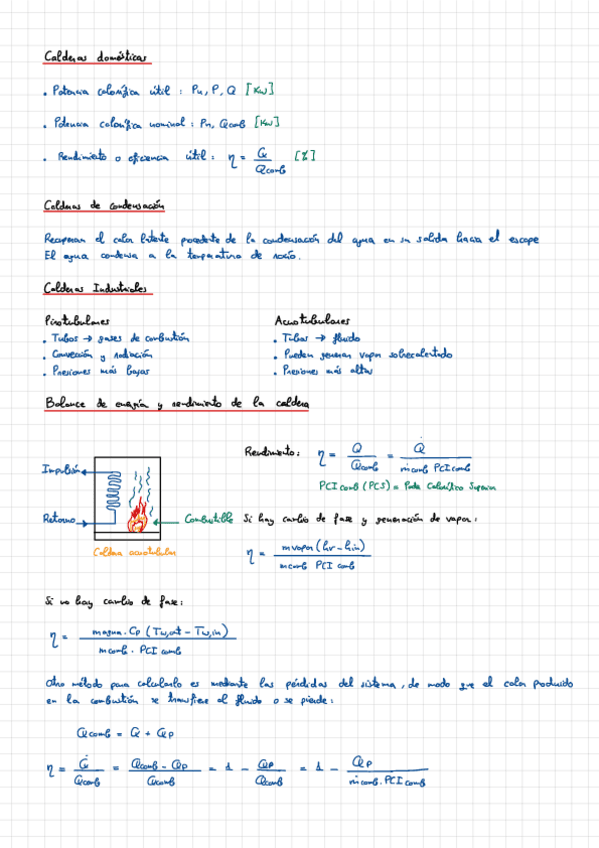 Calderas domésticas
• Potencia calorífica útil : Pu, P, Q [Kw]
• Potencia calorífica nominal : Pn, Qcomb [Kw]
• Rendimiento o eficiencia útil : η = Q / Qcomb [%]
Calderas de condensación
Recuperan el calor latente procedente de la condensación del agua en su salida hacia el escape
El agua condensa a la temperatura de rocío.
Calderas Industriales
Pirotubulares
• Tubos → gases de combustión
• Convección y radiación
• Presiones más bajas
Acuotubulares
• Tubos → fluido
• Pueden generar vapor sobrecalentado
• Presiones más altas
Balance de energía y rendimiento de la caldera
Impulsión
Retorno
Combustible
Caldera acuotubular
Rendimiento: η = Q / Qcomb = Q̇ / ṁcomb PCI comb
PCI comb (PCS) = Poder Calorífico Superior
Si hay cambio de fase y generación de vapor:
η = mvapor (hv - hin) / mcomb PCI comb
Si no hay cambio de fase:
η = magua · Cp (Tw,out - Tw,in) / mcomb · PCI comb
Otro método para calcularlo es mediante las pérdidas del sistema, de modo que el calor producido
en la combustión se transfiere al fluido o se pierde:
Qcomb = Q + Qp
η = Q̇ / Qcomb = Qcomb - Qp / Qcomb = 1 - Qp / Qcomb = 1 - Qp / ṁcomb · PCI comb